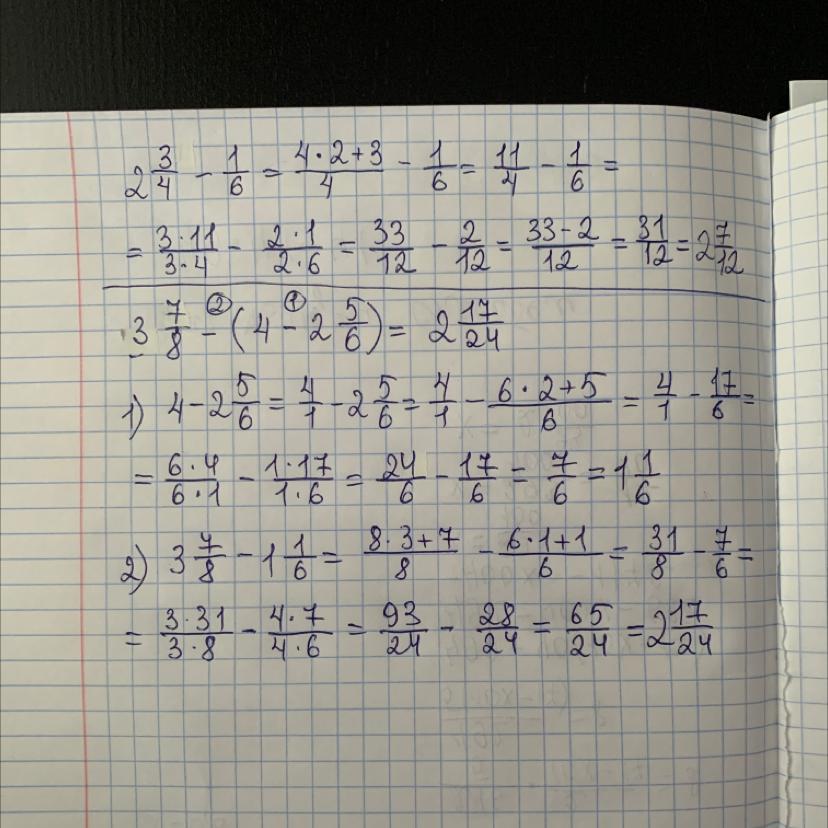 2 3/4 - 1/6 = (4·2+3)/4 - 1/6 = 11/4 - 1/6 =
= (3·11)/(3·4) - (2·1)/(2·6) = 33/12 - 2/12 = (33-2)/12 = 31/12 = 2 7/12
3 7/8 -② (4 -① 2 5/6) = 2 17/24
1) 4 - 2 5/6 = 4/1 - 2 5/6 = 4/1 - (6·2+5)/6 = 4/1 - 17/6 =
= (6·4)/(6·1) - (1·17)/(1·6) = 24/6 - 17/6 = 7/6 = 1 1/6
2) 3 7/8 - 1 1/6 = (8·3+7)/8 - (6·1+1)/6 = 31/8 - 7/6 =
= (3·31)/(3·8) - (4·7)/(4·6) = 93/24 - 28/24 = 65/24 = 2 17/24